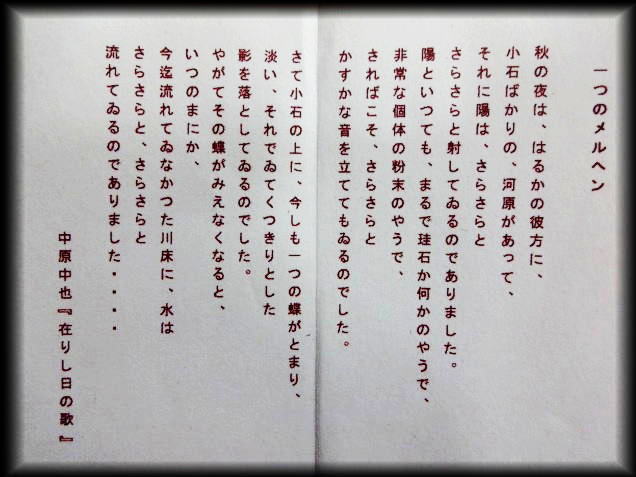 一つのメルヘン
秋の夜は、はるかの彼方に、
小石ばかりの、河原があって、
それに陽は、さらさらと
さらさらと射してゐるのでありました。
陽といつても、まるで珪石か何かのやうで、
非常な個体の粉末のやうで、
さればこそ、さらさらと
かすかな音を立ててもゐるのでした。
さて小石の上に、今しも一つの蝶がとまり、
淡い、それでゐてくつきりとした
影を落としてゐるのでした。
やがてその蝶がみえなくなると、
いつのまにか、
今迄流れてゐなかつた川床に、水は
さらさらと、さらさらと
流れてゐるのでありました・・・・
中原中也『在りし日の歌』